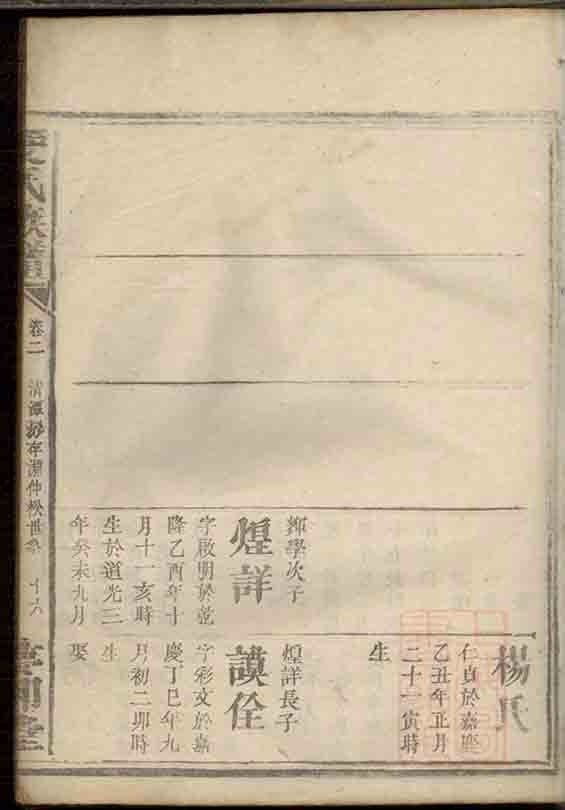 學次子
煌詳
字啟明於乾
隆乙酉年十
月十一亥時
生於道光三
年癸未九月
楊氏
仁貞於嘉慶
乙丑年正月
二十一寅時
生
煌詳長子
謨佺
字彩文於嘉
慶丁巳年九
月初二卯時
生
娶
氏族譜
卷二
清潭 存淵仲松世系
十六
堂